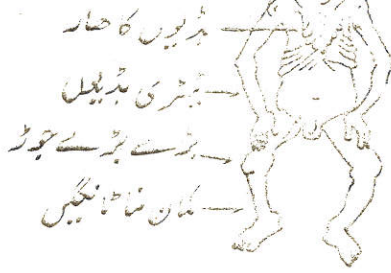 ہڈیوں کا ھار
ٹیڑی ہڈیوں
بڑے بڑے جوڑ
کمان نما ٹانگیں